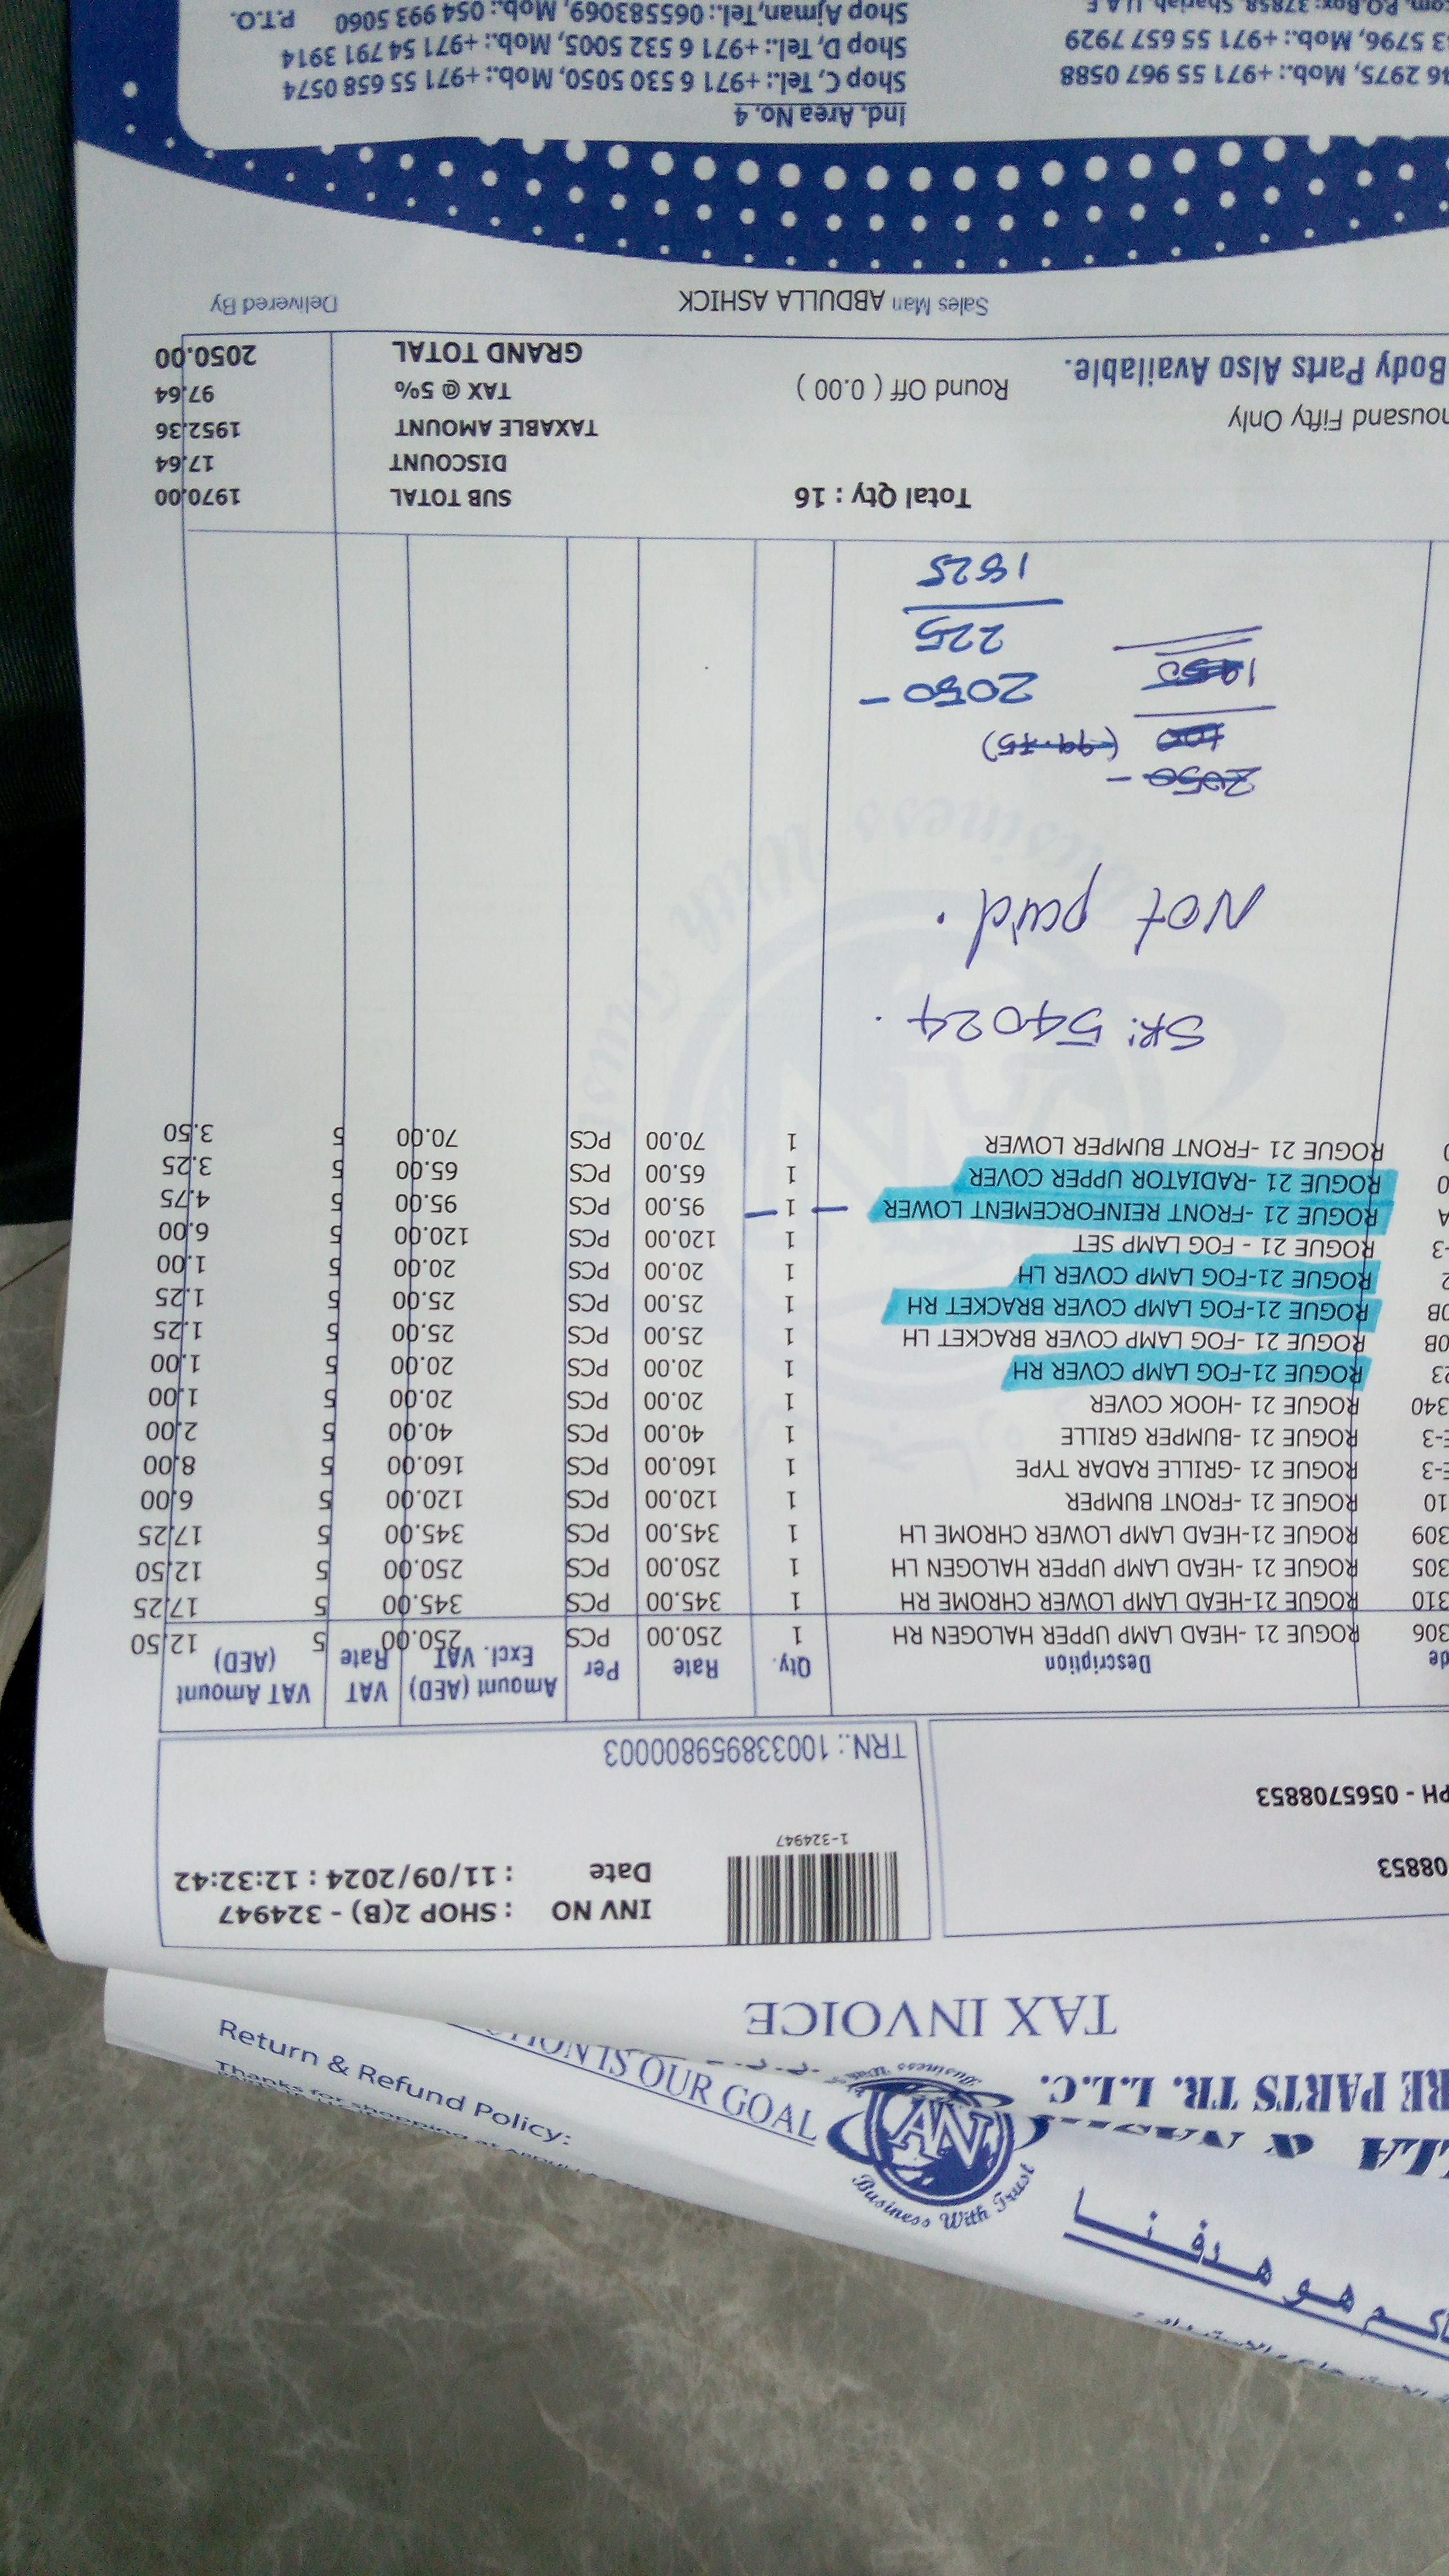 Return & Refund Policy:
Thanks for shopping at
هو هدفنا
ION IS OUR GOAL
Business With Trust
AN
RE PARTS TR. L.L.C.
TAX INVOICE
1-324947
INV NO : SHOP 2(B) - 324947
08853
Date : 11/09/2024 : 12:32:42
PH - 0565708853
TRN.: 100338959800003
de Description Qty. Rate Per Amount (AED) Excl. VAT VAT Rate VAT Amount (AED)
306 ROGUE 21 -HEAD LAMP UPPER HALOGEN RH 1 250.00 PCS 250.00 5 12.50
310 ROGUE 21-HEAD LAMP LOWER CHROME RH 1 345.00 PCS 345.00 5 17.25
305 ROGUE 21 -HEAD LAMP UPPER HALOGEN LH 1 250.00 PCS 250.00 5 12.50
309 ROGUE 21-HEAD LAMP LOWER CHROME LH 1 345.00 PCS 345.00 5 17.25
10 ROGUE 21 -FRONT BUMPER 1 120.00 PCS 120.00 5 6.00
E-3 ROGUE 21 -GRILLE RADAR TYPE 1 160.00 PCS 160.00 5 8.00
E-3 ROGUE 21 -BUMPER GRILLE 1 40.00 PCS 40.00 5 2.00
340 ROGUE 21 -HOOK COVER 1 20.00 PCS 20.00 5 1.00
23 ROGUE 21-FOG LAMP COVER RH 1 20.00 PCS 20.00 5 1.00
0B ROGUE 21 -FOG LAMP COVER BRACKET LH 1 25.00 PCS 25.00 5 1.25
0B ROGUE 21-FOG LAMP COVER BRACKET RH 1 25.00 PCS 25.00 5 1.25
2 ROGUE 21-FOG LAMP COVER LH 1 20.00 PCS 20.00 5 1.00
-3 ROGUE 21 - FOG LAMP SET 1 120.00 PCS 120.00 5 6.00
A ROGUE 21 -FRONT REINFORCEMENT LOWER 1 95.00 PCS 95.00 5 4.75
0 ROGUE 21 -RADIATOR UPPER COVER 1 65.00 PCS 65.00 5 3.25
0 ROGUE 21 -FRONT BUMPER LOWER 1 70.00 PCS 70.00 5 3.50
SR: 54024.
Not paid.
2050 -
100 (99.75)
1950
2050 -
225
1825
Total Qty : 16 SUB TOTAL 1970.00
DISCOUNT 17.64
ousand Fifty Only TAXABLE AMOUNT 1952.36
Round Off ( 0.00 ) TAX @ 5% 97.64
Body Parts Also Available. GRAND TOTAL 2050.00
Sales Man ABDULLA ASHICK Delivered By
Ind. Area No. 4
46 2975, Mob.: +971 55 967 0588 Shop C, Tel.: +971 6 530 5050, Mob.: +971 55 658 0574
3 5796, Mob.: +971 55 657 7929 Shop D, Tel.: +971 6 532 5005, Mob.: +971 54 791 3914
com, P.O.Box: 37858, Sharjah, U.A.E Shop Ajman,Tel.: 065583069, Mob.: 054 993 5060 P.T.O.